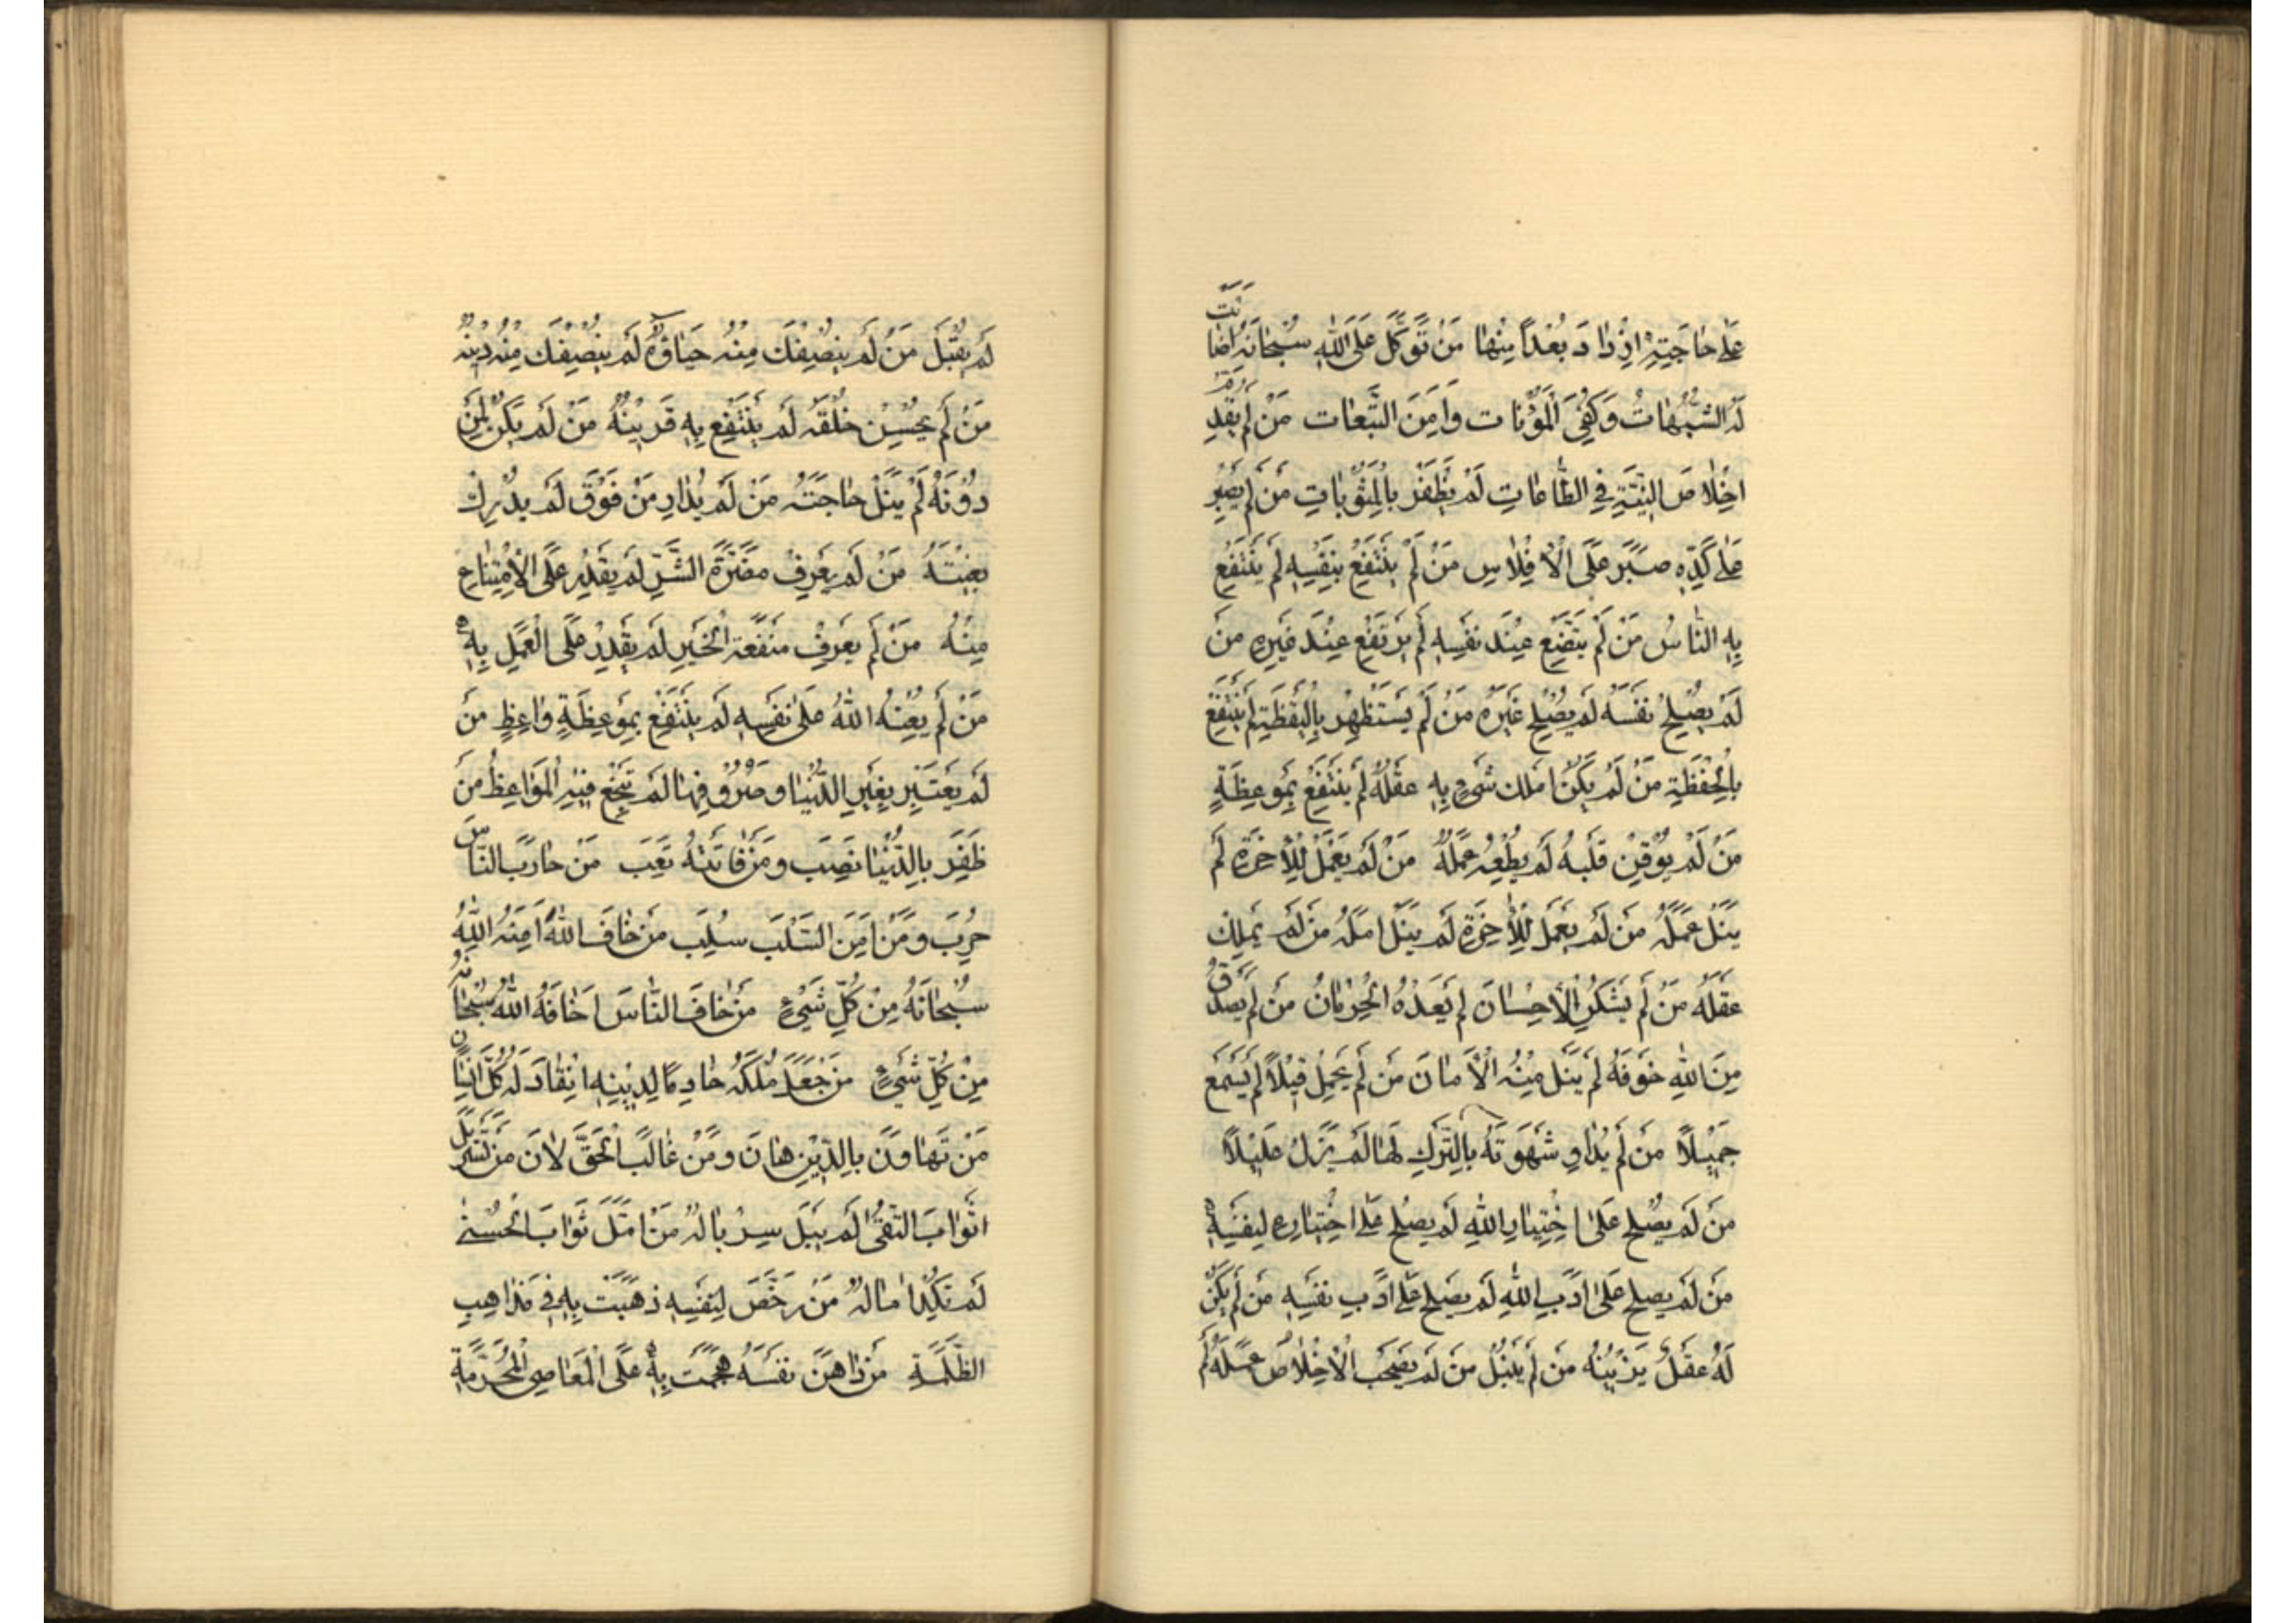 عَلٰى حٰاجَتِهٖ اِزْدٰادَ بُعْدًا مِنْهٰا مَنْ تَوَكَّلَ عَلَى اللّٰهِ سُبْحٰانَهُ اَضٰائَتْ
لَهُ الشُّبُهٰاتُ وَكُفِىَ الْمَؤُنٰات وَاَمِنَ التَّبِعٰات مَنْ لَمْ يُقَدِّمْ
اِخْلٰاصَ النِّيَّةِ فِى الطّٰاعٰاتِ لَمْ يَظْفَرْ بِالْمَثُوبٰاتِ مَنْ لَمْ يَصْبِرْ
عَلٰى كَدِّهٖ صَبَرَ عَلَى الْاِفْلٰاسِ مَنْ لَمْ يَنْتَفِعْ بِنَفْسِهٖ لَمْ يَنْتَفِعْ
بِهِ النّٰاسُ مَنْ لَمْ يَتَّضِعْ عِنْدَ نَفْسِهٖ لَمْ يَرْتَفِعْ عِنْدَ غَيْرِهٖ مَنْ
لَمْ يُصْلِحْ نَفْسَهُ لَمْ يُصْلِحْ غَيْرَهُ مَنْ لَمْ يَسْتَظْهِرْ بِالْيَقْظَةِ لَمْ يَنْتَفِعْ
بِالْحَفَظَةِ مَنْ لَمْ يَكُنْ اَمْلَك شَىْءٍ بِهٖ عَقْلُهُ لَمْ يَنْتَفِعْ بِمَوْعِظَةٍ
مَنْ لَمْ يُوقِنْ قَلْبُهُ لَمْ يُطِعْهُ عَمَلُهُ مَنْ لَمْ يَعْمَلْ لِلْاٰخِرَةِ لَمْ
يَنَلْ عَمَلَهُ مَنْ لَمْ يَعْمَلْ لِلْاٰخِرَةِ لَمْ يَنَلْ اَمَلَهُ مَنْ لَمْ يَمْلِكْ
عَقْلَهُ مَنْ لَمْ يَشْكُرِ الْاِحْسٰانَ لَمْ يَعْدُهُ الْحِرْمٰانُ مَنْ لَمْ يَصْدُقْ
مِنَ اللّٰهِ خَوْفَهُ لَمْ يَنَلْ مِنْهُ الْاَمٰانَ مَنْ لَمْ يَحْمِلْ قِيلًا لَمْ يَسْمَعْ
جَمِيْلًا مَنْ لَمْ يُدٰاوِ شَهْوَتَهُ بِالتَّرْكِ لَهٰا لَمْ يَزَلْ عَلِيْلًا
مَنْ لَمْ يَصْلُحْ عَلَى اخْتِيٰارِ اللّٰهِ لَمْ يَصْلُحْ عَلَى اخْتِيٰارِهٖ لِنَفْسِهٖ
مَنْ لَمْ يَصْلُحْ عَلٰى اَدَبِ اللّٰهِ لَمْ يَصْلُحْ عَلٰى اَدَبِ نَفْسِهٖ مَنْ لَمْ يَكُنْ
لَهُ عَقْلٌ يَزِيْنُهُ مَنْ لَمْ يَنْبُلْ مَنْ لَمْ يَصْحَبِ الْاِخْلٰاصُ عَمَلَهُ لَمْ
لَمْ يُقْبَلْ مَنْ لَمْ يُنْصِفْكَ مِنْهُ حَيٰاؤُهُ لَمْ يُنْصِفْكَ مِنْهُ دِيْنُهُ
مَنْ لَمْ يُحْسِنْ خُلْقَهُ لَمْ يَنْتَفِعْ بِهٖ قَرِيْنُهُ مَنْ لَمْ يَكُنْ لِمَنْ
دُوْنَهُ لَمْ يَنَلْ حٰاجَتَهُ مَنْ لَمْ يُدٰارِ مَنْ فَوْقَ لَمْ يُدْرِكْ
بِغْيَتَهُ مَنْ لَمْ يَعْرِفْ مَضَرَّةَ الشَّرِّ لَمْ يَقْدِرْ عَلَى الْاِمْتِنٰاعِ
مِنْهُ مَنْ لَمْ يَعْرِفْ مَنْفَعَةَ الْخَيْرِ لَمْ يَقْدِرْ عَلَى الْعَمَلِ بِهٖ
مَنْ لَمْ يُعِنْهُ اللّٰهُ عَلٰى نَفْسِهٖ لَمْ يَنْتَفِعْ بِمَوْعِظَةٍ وٰاعِظٍ مَنْ
لَمْ يَعْتَبِرْ بِغِيَرِ الدُّنْيٰا وَصُرُوفِهٰا لَمْ تَنْجَعْ فِيْهِ الْمَوٰاعِظُ مَنْ
ظَفِرَ بِالدُّنْيٰا نَصِبَ وَمَنْ فٰاتَتْهُ تَعِبَ مَنْ حٰارَبَ النّٰاسَ
حُرِبَ وَمَنْ اَمِنَ السَّلْبَ سُلِبَ مَنْ خٰافَ اللّٰهَ اٰمَنَهُ اللّٰهُ
سُبْحٰانَهُ مِنْ كُلِّ شَىْءٍ مَنْ خٰافَ النّٰاسَ اَخٰافَهُ اللّٰهُ سُبْحٰانَهُ
مِنْ كُلِّ شَىْءٍ مَنْ جَعَلَ مُلْكَهُ خٰادِمًا لِدِيْنِهٖ انْقٰادَ لَهُ كُلُّ
مَنْ تَهٰاوَنَ بِالدِّيْنِ هٰانَ وَمَنْ غٰالَبَ الْحَقَّ لٰانَ مَنْ تَسَرْبَلَ
اَثْوٰابَ التُّقٰى لَمْ يَبْلَ سِرْبٰالُهُ مَنْ اَمَّلَ ثَوٰابَ الْحُسْنٰى
لَمْ تَنْكُدْ اٰمٰالُهُ مَنْ رَخَّصَ لِنَفْسِهٖ ذَهَبَتْ بِهٖ فِى مَذٰاهِبِ
الظَّلَمَةِ مَنْ دٰاهَنَ نَفْسَهُ هَجَمَتْ بِهٖ عَلَى الْمَعٰاصِى الْمُحَرَّمَةِ